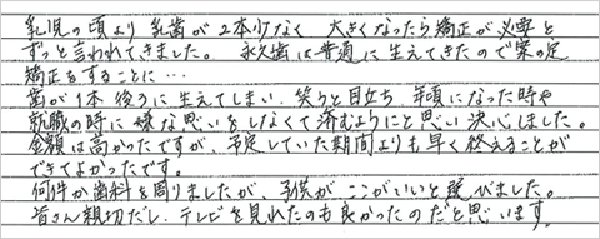 乳児の頃より乳歯が2本少なく 大きくなったら矯正が必要と
ずっと言われてきました。 永久歯は普通に生えてきたので案の定
矯正をすることに…
歯が1本後ろに生えてしまい、笑うと目立ち 年頃になった時や
就職の時に嫌な思いをしなくて済むようにと思い決心しました。
金額は高かったですが、予定していた期間よりも早く終えることが
できてよかったです。
何件か歯科を周りましたが、子供がここがいいと選びました。
皆さん親切だし、テレビを見れたのも良かったのだと思います